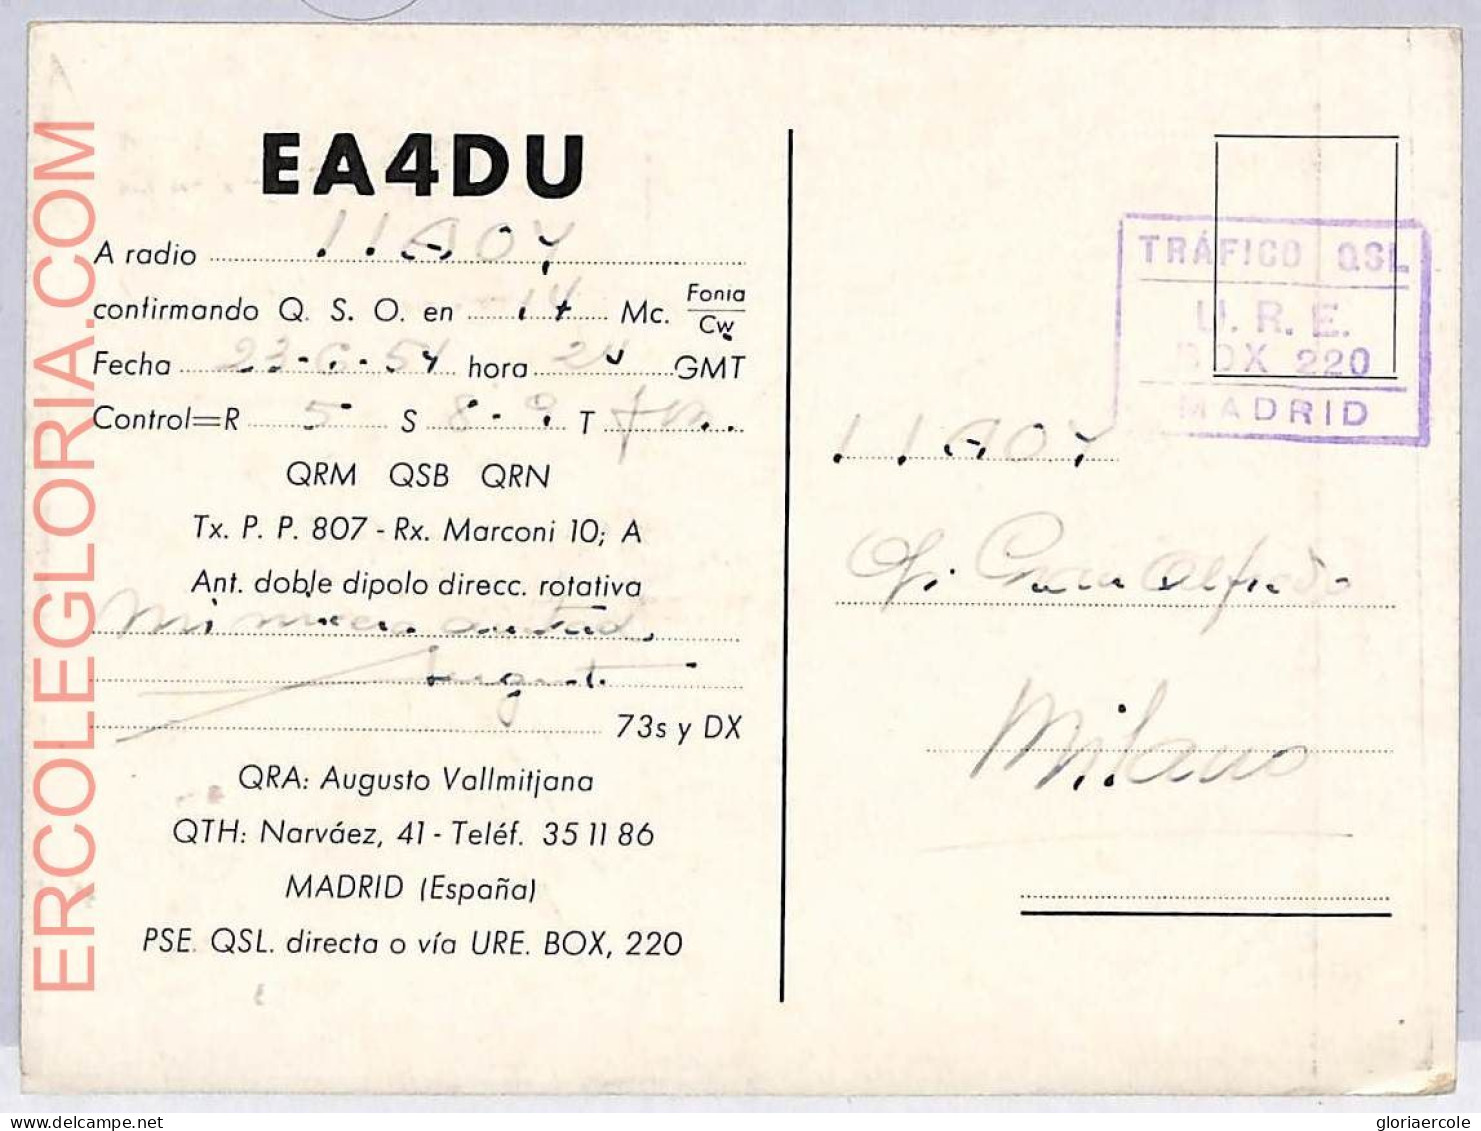 EA4DU
A radio I1AOY
confirmando Q. S. O. en 14 Mc. Fonia
Cw
Fecha 23-6-54 hora GMT
Control=R 5 S 8-9 T
QRM QSB QRN
Tx. P. P. 807 - Rx. Marconi 10; A
Ant. doble dipolo direcc. rotativa
Mi
73s y DX
QRA: Augusto Vallmitjana
QTH: Narváez, 41 - Teléf. 35 11 86
MADRID (España)
PSE. QSL. directa o vía URE. BOX, 220
TRÁFICO QSL
U. R. E.
BOX 220
MADRID
I1AOY
Alfredo
Milano
ERCOLEGLORIA.COM
gloriaercole